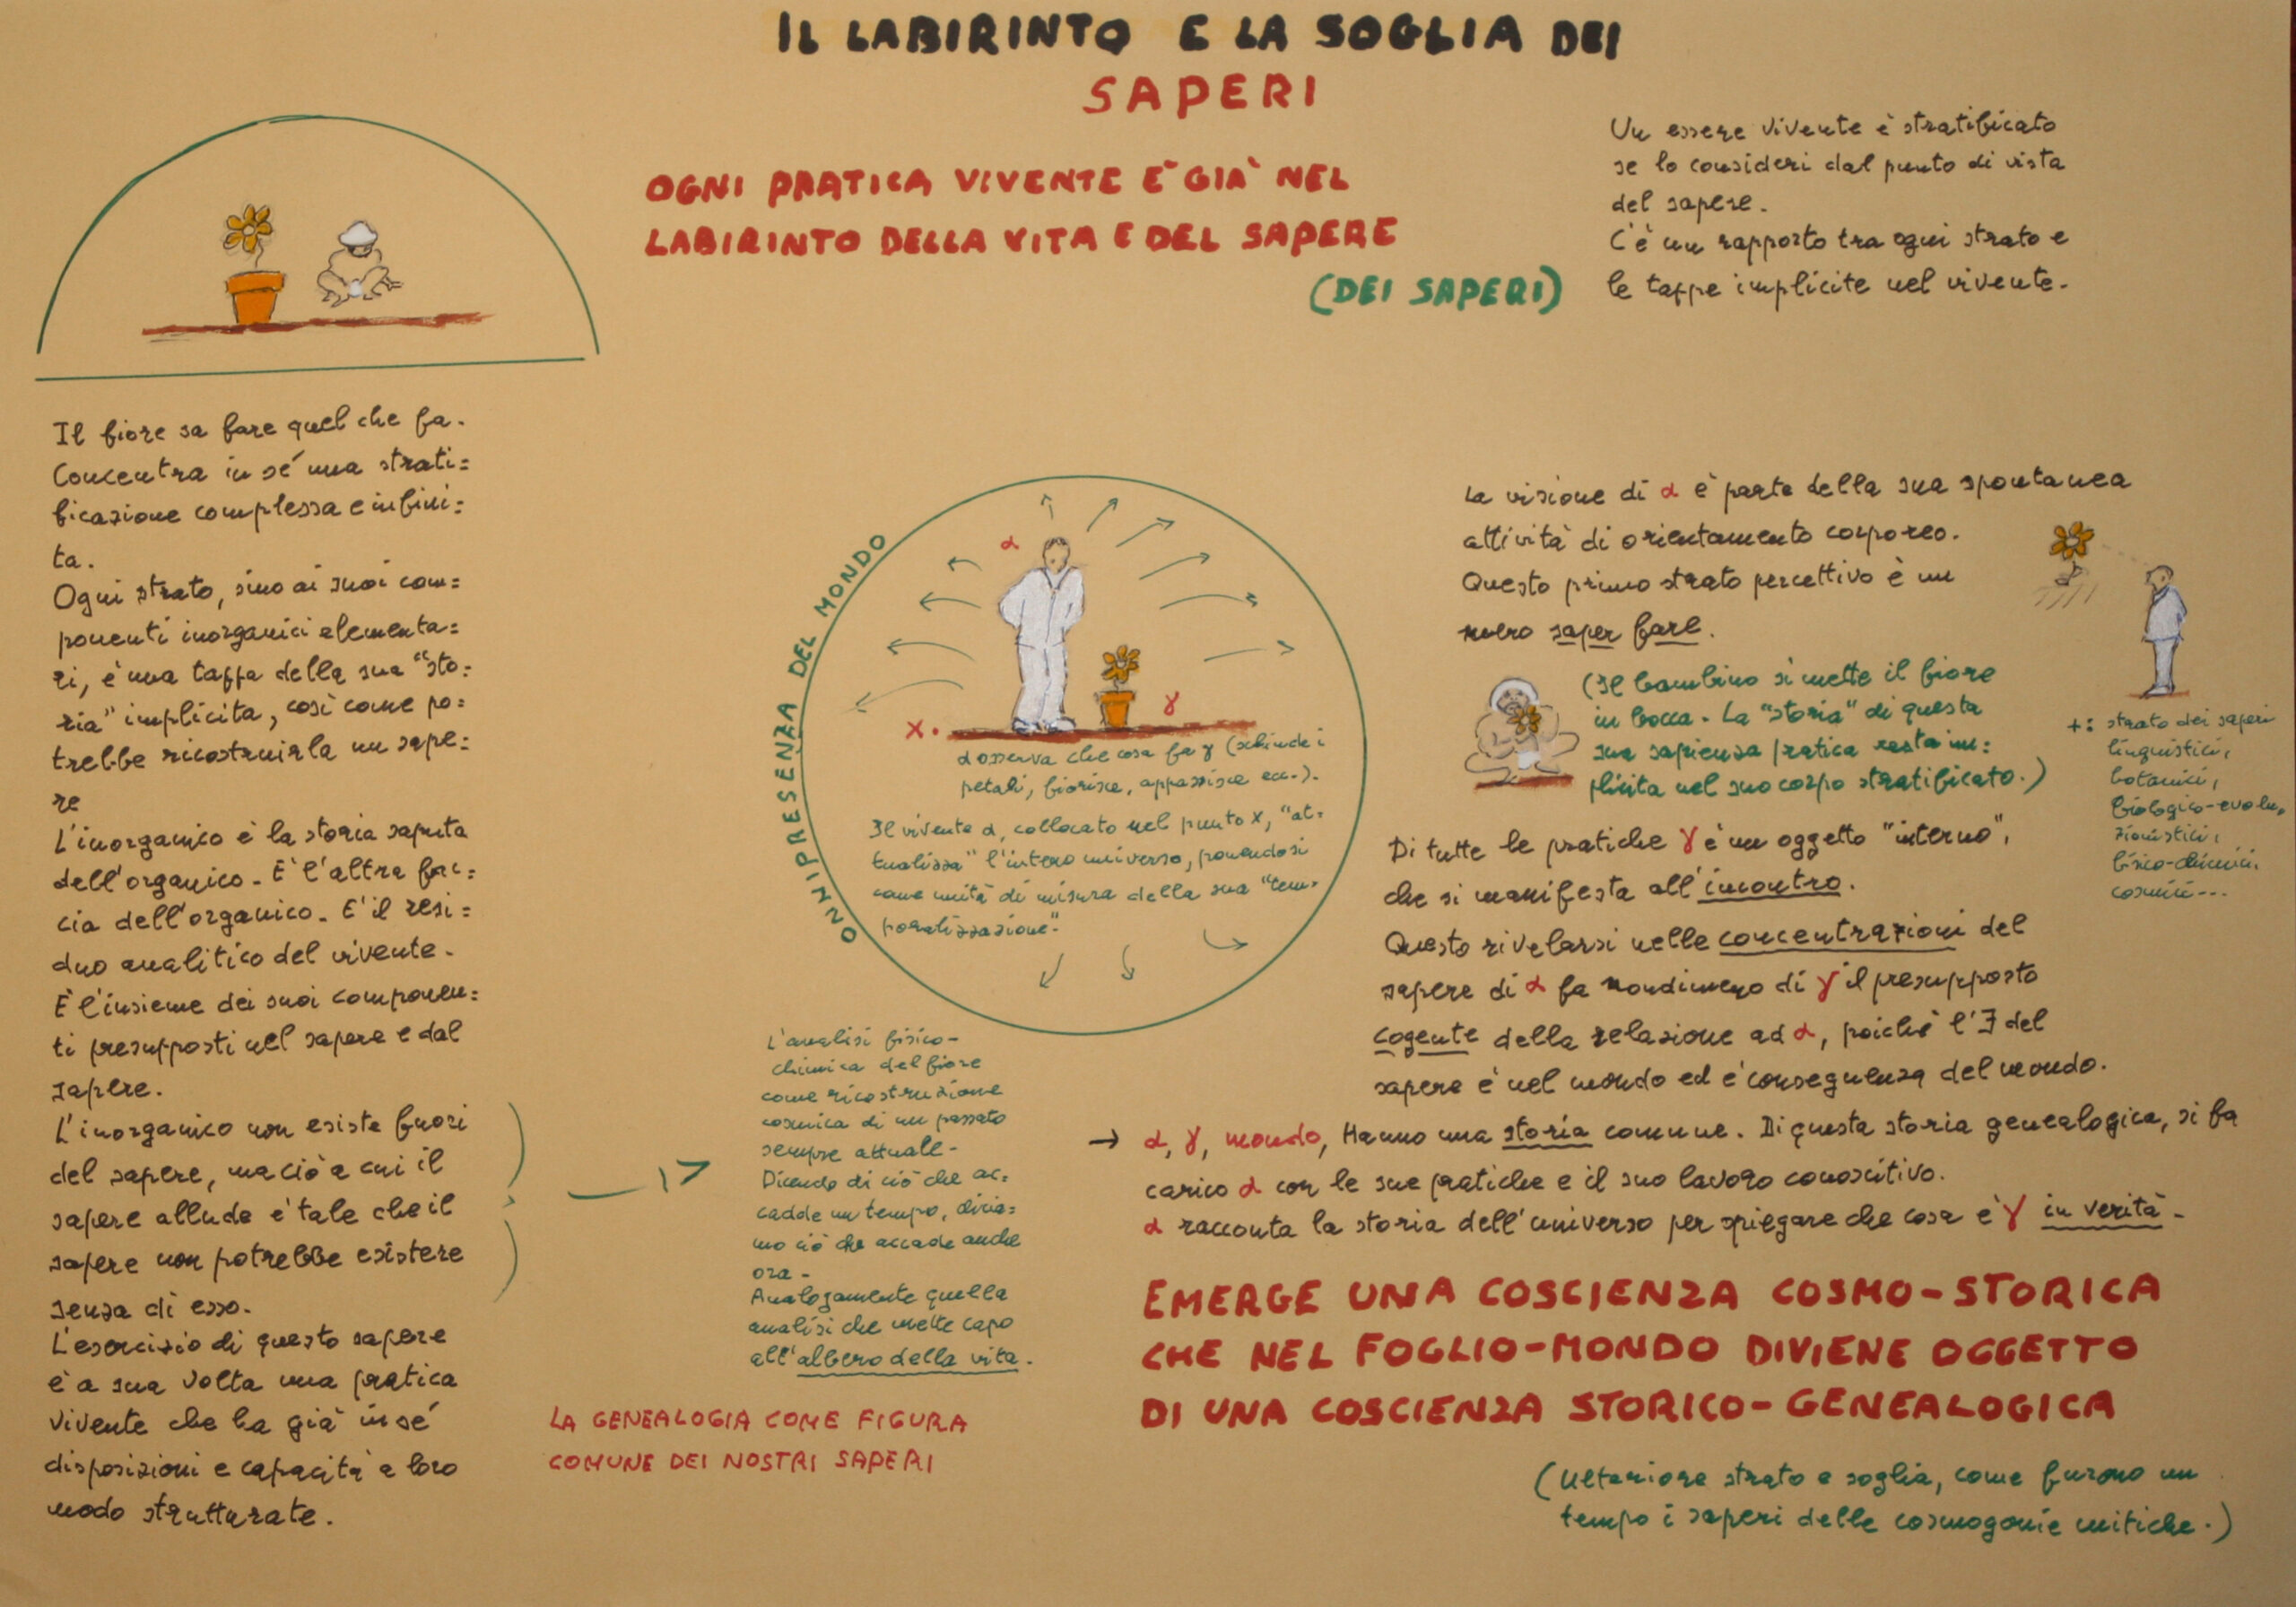 IL LABIRINTO E LA SOGLIA DEI
SAPERI
OGNI PRATICA VIVENTE E' GIA' NEL
LABIRINTO DELLA VITA E DEL SAPERE
(DEI SAPERI)
Un essere vivente è stratificato
se lo consideri dal punto di vista
del sapere.
C'è un rapporto tra ogni strato e
le tappe implicite nel vivente.
Il fiore sa fare quel che fa.
Concentra in sé una strati=
ficazione complessa e infini=
ta.
Ogni strato, sino ai suoi com=
ponenti inorganici elementa=
ri, è una tappa della sua "sto=
ria" implicita, così come po=
trebbe ricostruirla un sape=
re
L'inorganico è la storia saputa
dell'organico. E' l'altra fac=
cia dell'organico. E' il resi=
duo analitico del vivente.
E' l'insieme dei suoi componen=
ti presupposti nel sapere e dal
sapere.
L'inorganico non esiste fuori
del sapere, ma ciò a cui il
sapere allude è tale che il
sapere non potrebbe esistere
senza di esso.
L'esercizio di questo sapere
è a sua volta una pratica
vivente che ha già in sé
disposizioni e capacità a loro
modo strutturate.
ONNIPRESENZA DEL MONDO
α
γ
X.
α osserva che cosa fa γ (schiude i
petali, fiorisce, appassisce ecc.).
Il vivente α, collocato nel punto X, "at=
tualizza" l'intero universo, ponendosi
come unità di misura della sua "tem=
poralizzazione".
L'analisi fisico-
chimica del fiore
come ricostruzione
cosmica di un passato
sempre attuale.
Dicendo di ciò che ac=
cadde un tempo, dicia=
mo ciò che accade anche
ora.
Analogamente quella
analisi che mette capo
all'albero della vita.
LA GENEALOGIA COME FIGURA
COMUNE DEI NOSTRI SAPERI
La visione di α è parte della sua spontanea
attività di orientamento corporeo.
Questo primo strato percettivo è un
mero saper fare.
(Il bambino si mette il fiore
in bocca. La "storia" di questa
sua sapienza pratica resta im=
plicita nel suo corpo stratificato.)
+: strato dei saperi
linguistici,
botanici,
biologico-evolu,
zionistici,
fisico-chimici,
cosmici...
Di tutte le pratiche γ è un oggetto "interno",
che si manifesta all'incontro.
Questo rivelarsi nelle concentrazioni del
sapere di α fa nondimeno di γ il presupposto
cogente della relazione ad α, poiché l'∃ del
sapere è nel mondo ed è conseguenza del mondo.
→ α, γ, mondo, Hanno una storia comune. Di questa storia genealogica, si fa
carico α con le sue pratiche e il suo lavoro conoscitivo.
α racconta la storia dell'universo per spiegare che cosa è γ in verità.
EMERGE UNA COSCIENZA COSMO-STORICA
CHE NEL FOGLIO-MONDO DIVIENE OGGETTO
DI UNA COSCIENZA STORICO-GENEALOGICA
(Ulteriore strato e soglia, come furono un
tempo i saperi delle cosmogonie mitiche.)